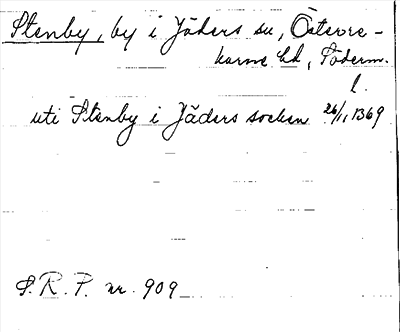 Stenby, by i Jäders sn, Österre-
karne hd, Söderm.
l.
uti Stenby i Jäders socken 26/11, 1369
S.R.P. nr. 909